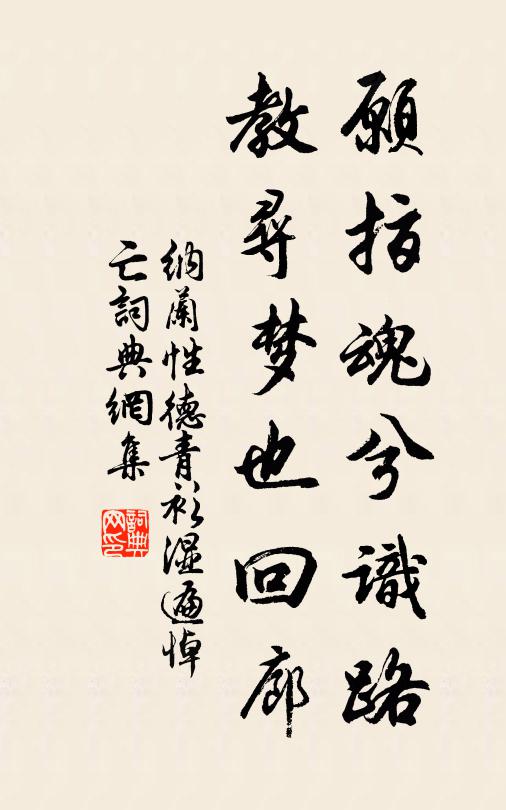 願指魂兮識路
教尋梦也回廊
纳蘭性德青衫湿遍悼
亡詞典網集
詞典网印